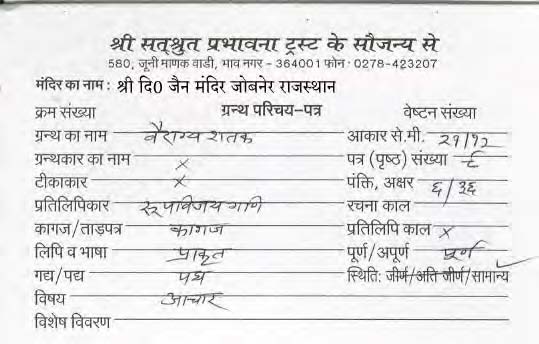 श्री सत्श्रुत प्रभावना ट्रस्ट के सौजन्य से
580, जूनी माणक वाडी, भाव नगर - 364001 फोन : 0278-423207
मंदिर का नाम : श्री दि0 जैन मंदिर जोबनेर राजस्थान
क्रम संख्या ग्रन्थ परिचय-पत्र वेष्टन संख्या
ग्रन्थ का नाम वैराग्य शतक आकार से.मी. २१/१२
ग्रन्थकार का नाम x पत्र (पृष्ठ) संख्या ८
टीकाकार x पंक्ति, अक्षर ६/३६
प्रतिलिपिकार रूपविजय गणि रचना काल
कागज/ताड़पत्र कागज प्रतिलिपि काल x
लिपि व भाषा प्राकृत पूर्ण/अपूर्ण पूर्ण
गद्य/पद्य पद्य स्थिति: जीर्ण/अति जीर्ण/सामान्य
विषय आचार
विशेष विवरण